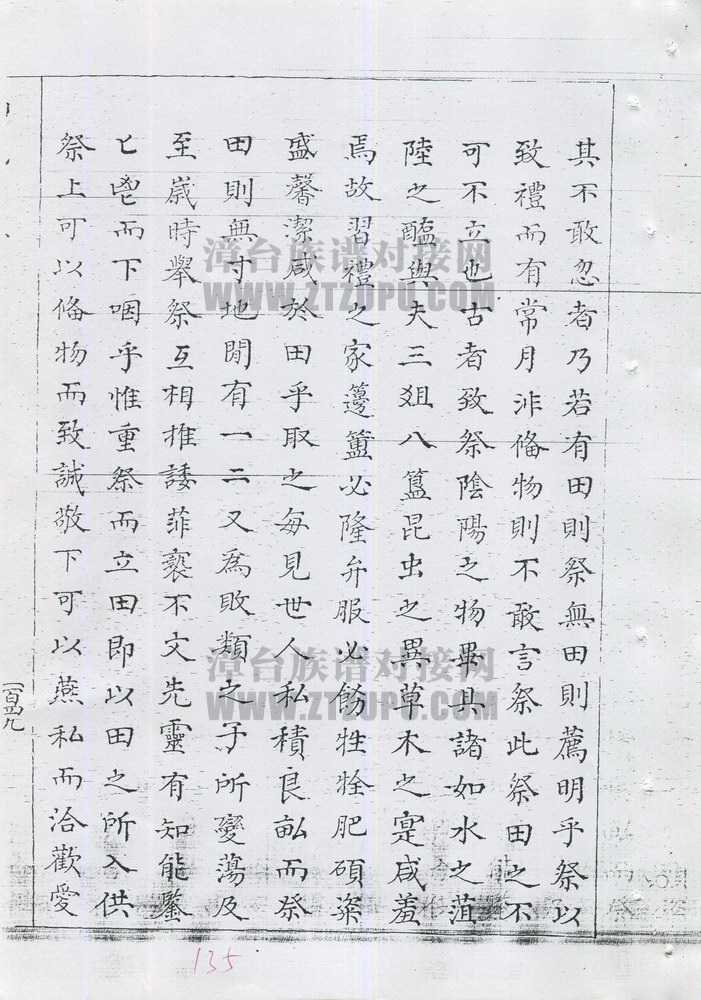 其不敢忽者乃若有田則祭無田則薦明乎祭以
致禮而有常月非俻物則不敢言祭此祭田之不
可不立也古者致祭陰陽之物畢具諸如水之菹
陸之醢與夫三爼八簋昆虫之異草木之寔咸羞
焉故習禮之家籩簠必隆弁服必餝牲牷肥碩粢
盛馨潔咸於田乎取之每見世人私積良畝而祭
田則無寸地間有一二又為敗類之子所變蕩及
至歲時舉祭互相推諉菲褻不文先靈有知能鑒
匕鬯而下咽乎惟重祭而立田即以田之所入供
祭上可以俻物而致誠敬下可以燕私而洽歡愛
一百四九
135
漳台族谱对接网
WWW.ZTZUPU.COM
漳台族谱对接网
WWW.ZTZUPU.COM